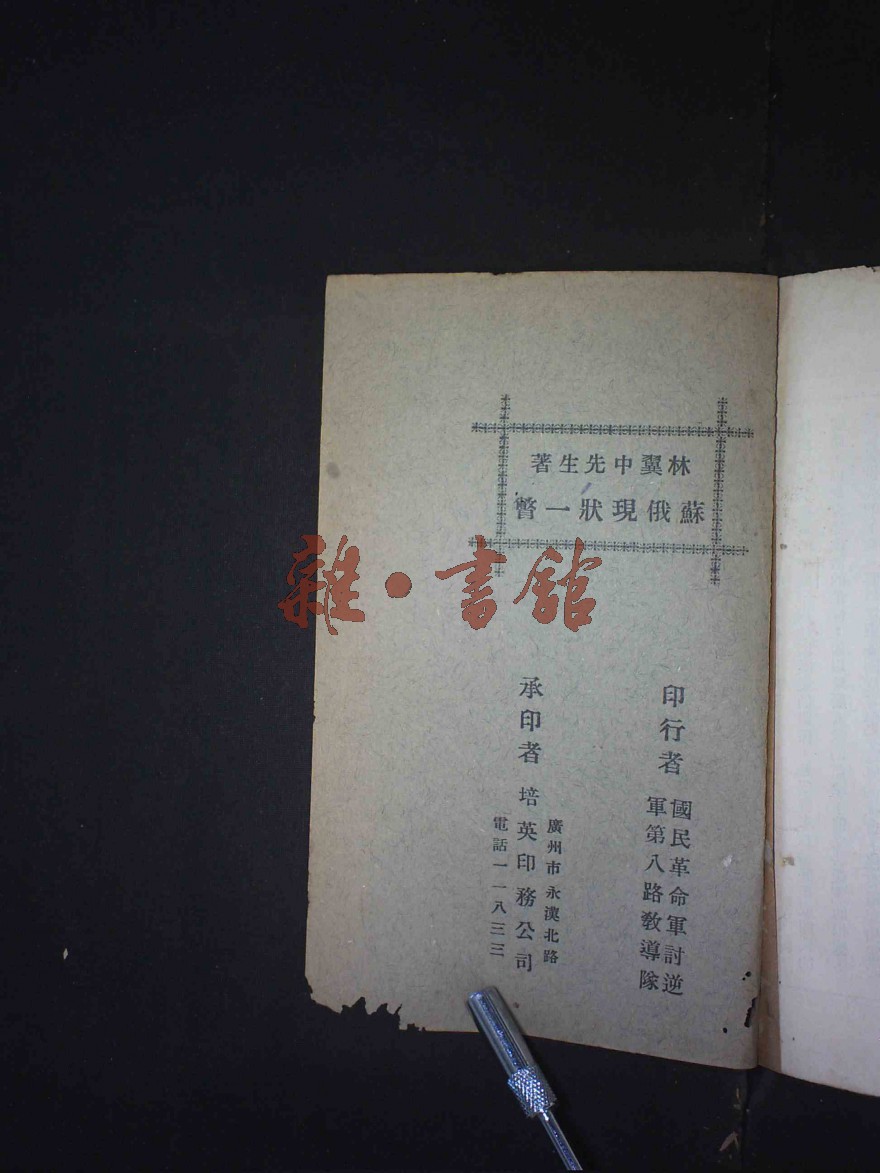 林翼中先生著
蘇俄現狀一瞥
雜·書館
印行者 國民革命軍討逆
軍第八路教導隊
廣州市永漢北路
承印者 培英印務公司
電話一一八三三